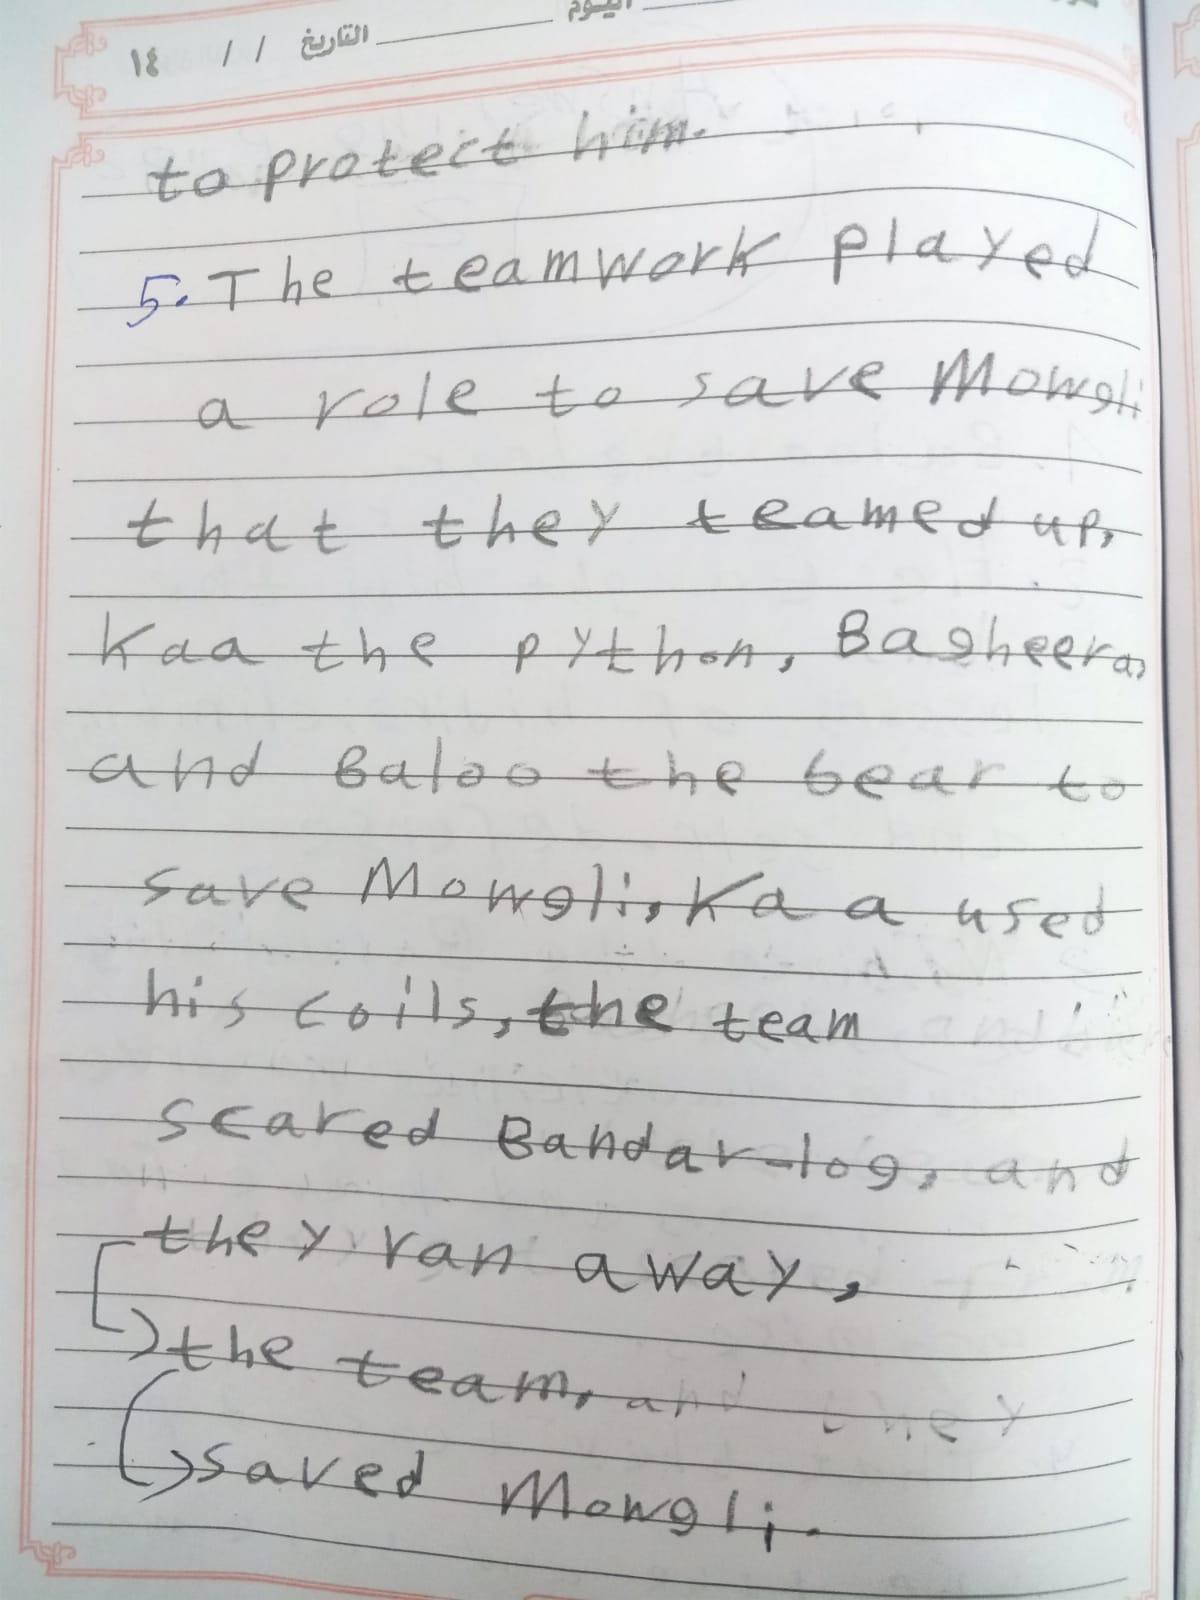 اليوم
التاريخ / / ١٤
to protect him.
5. The teamwork played
a role to save Mowgli
that they teamed up,
Kaa the python, Bagheera,
and Baloo the bear to
save Mowgli, Kaa used
his coils, the team
scared Bandar-log, and
they ran away,
the team, and they
saved Mowgli.